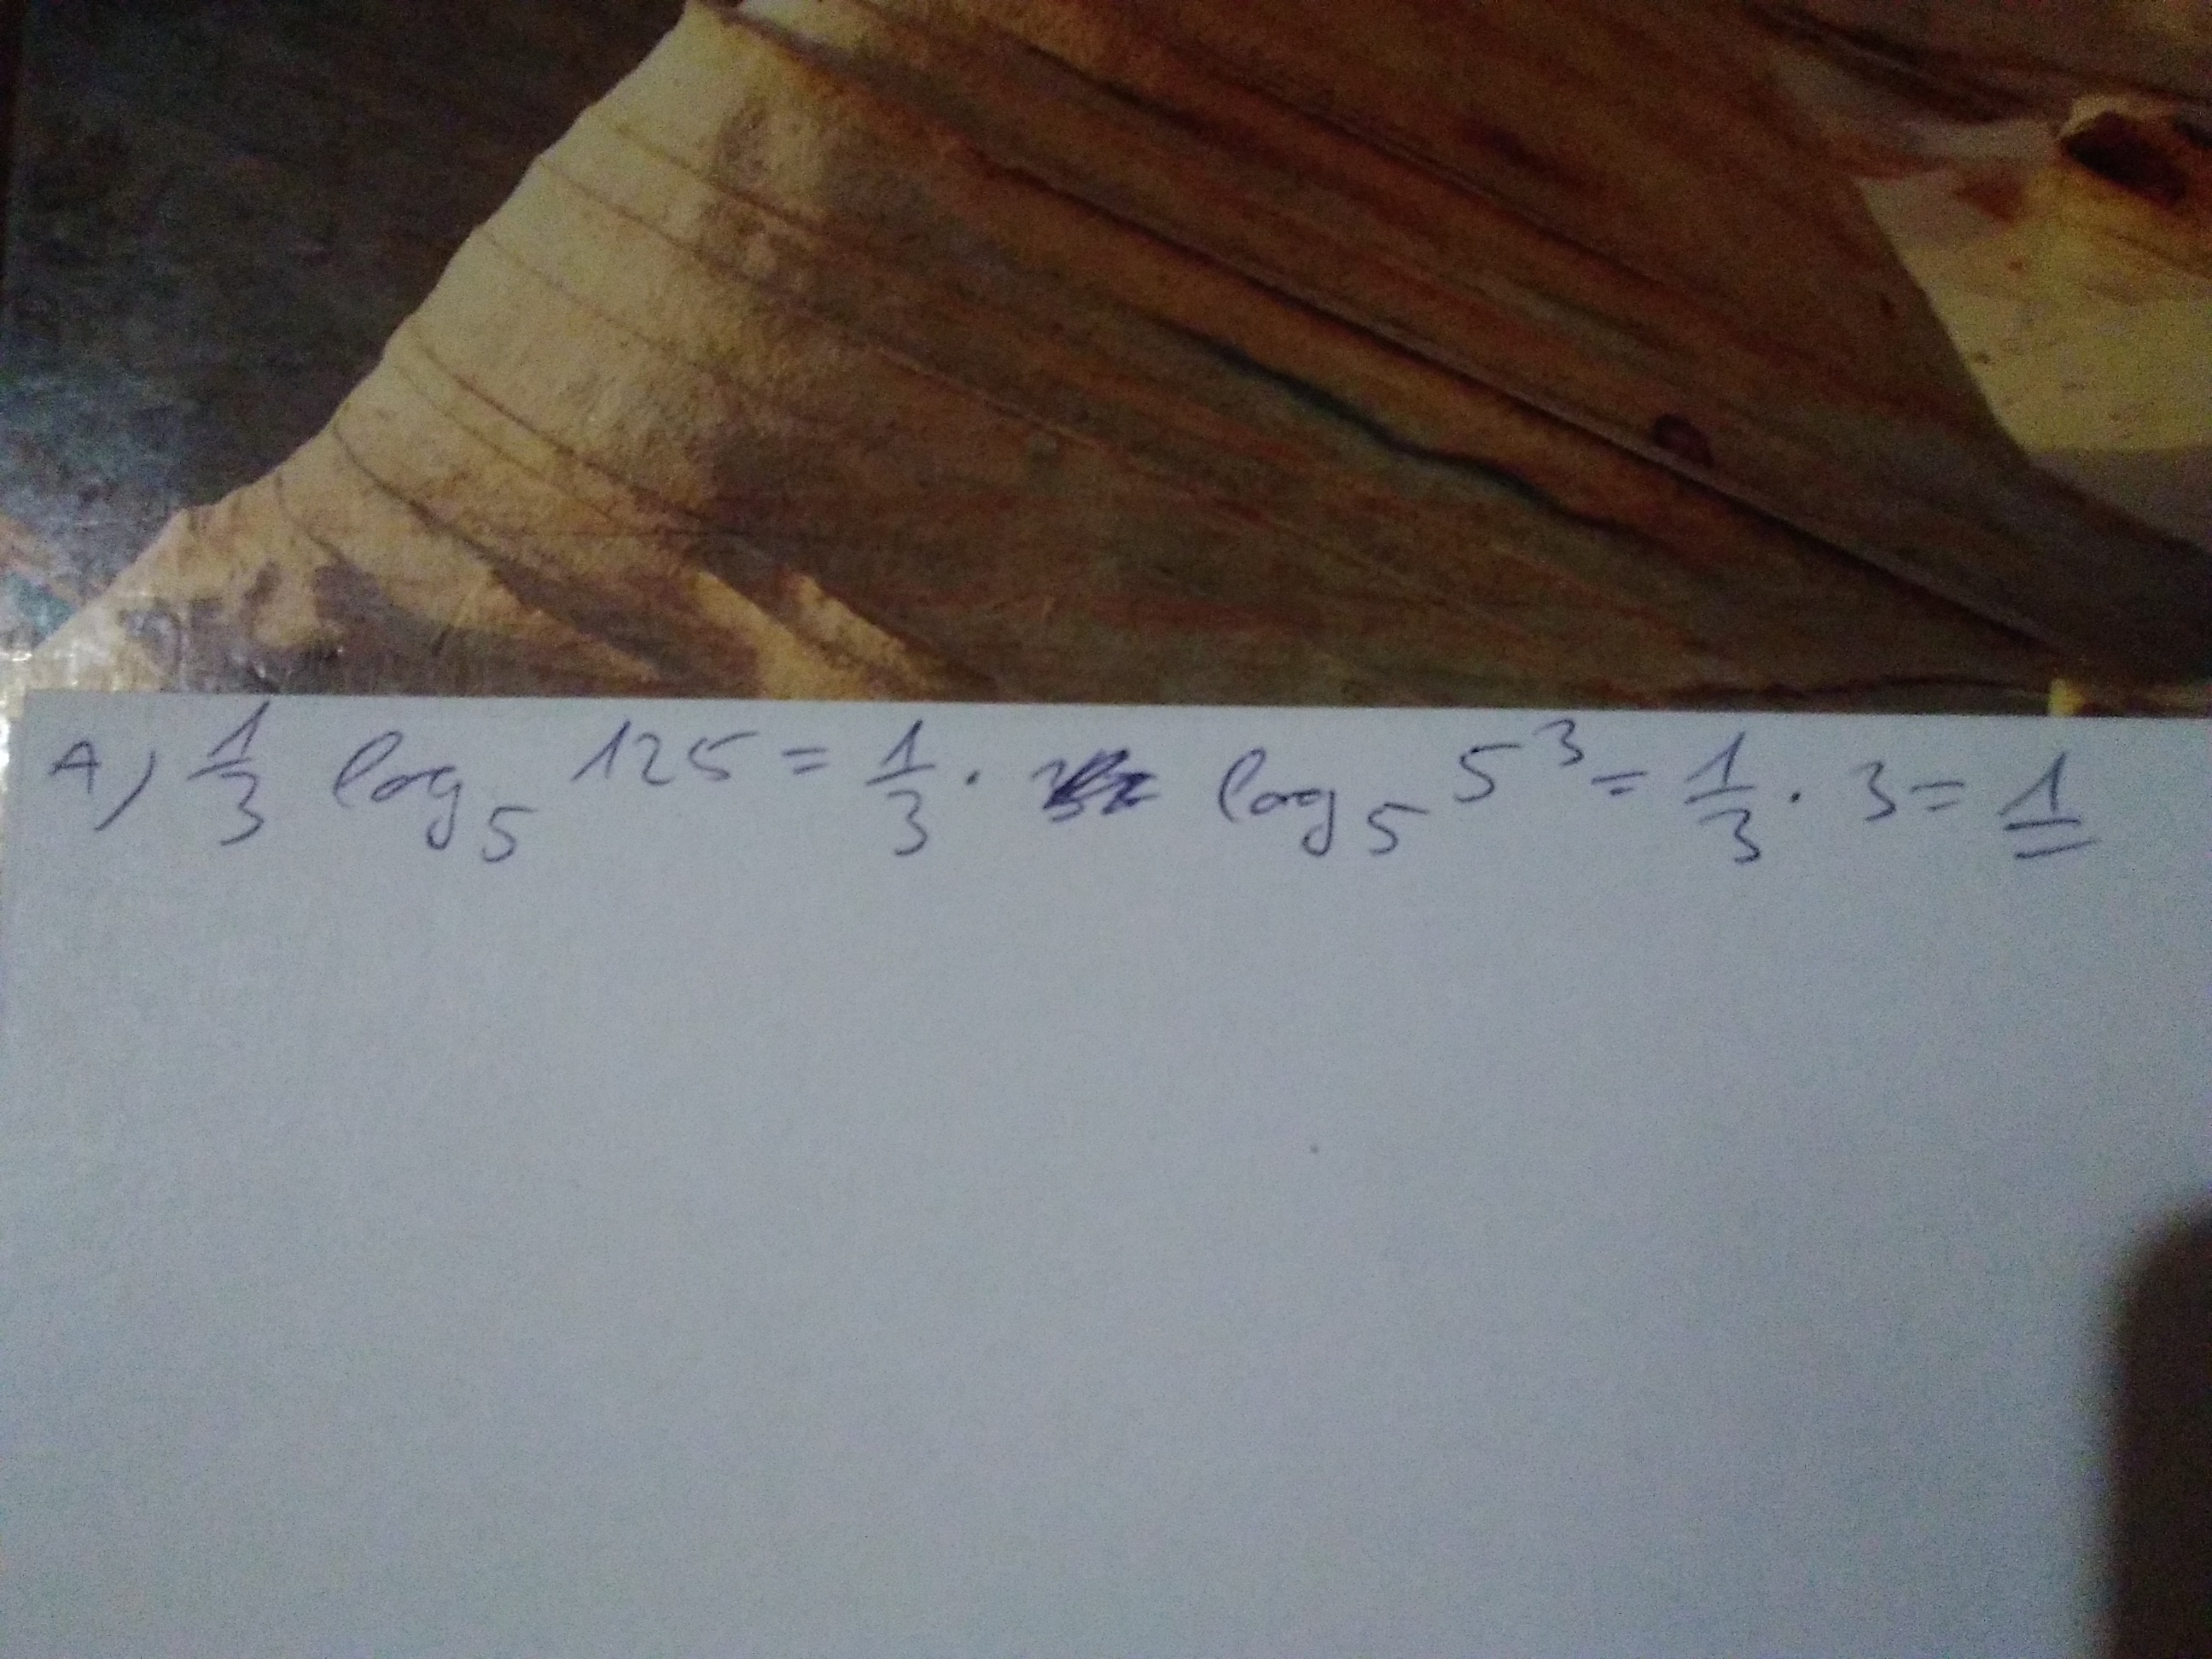 A) 1/3 log₅ 125 = 1/3 · log₅ 5³ = 1/3 · 3 = 1